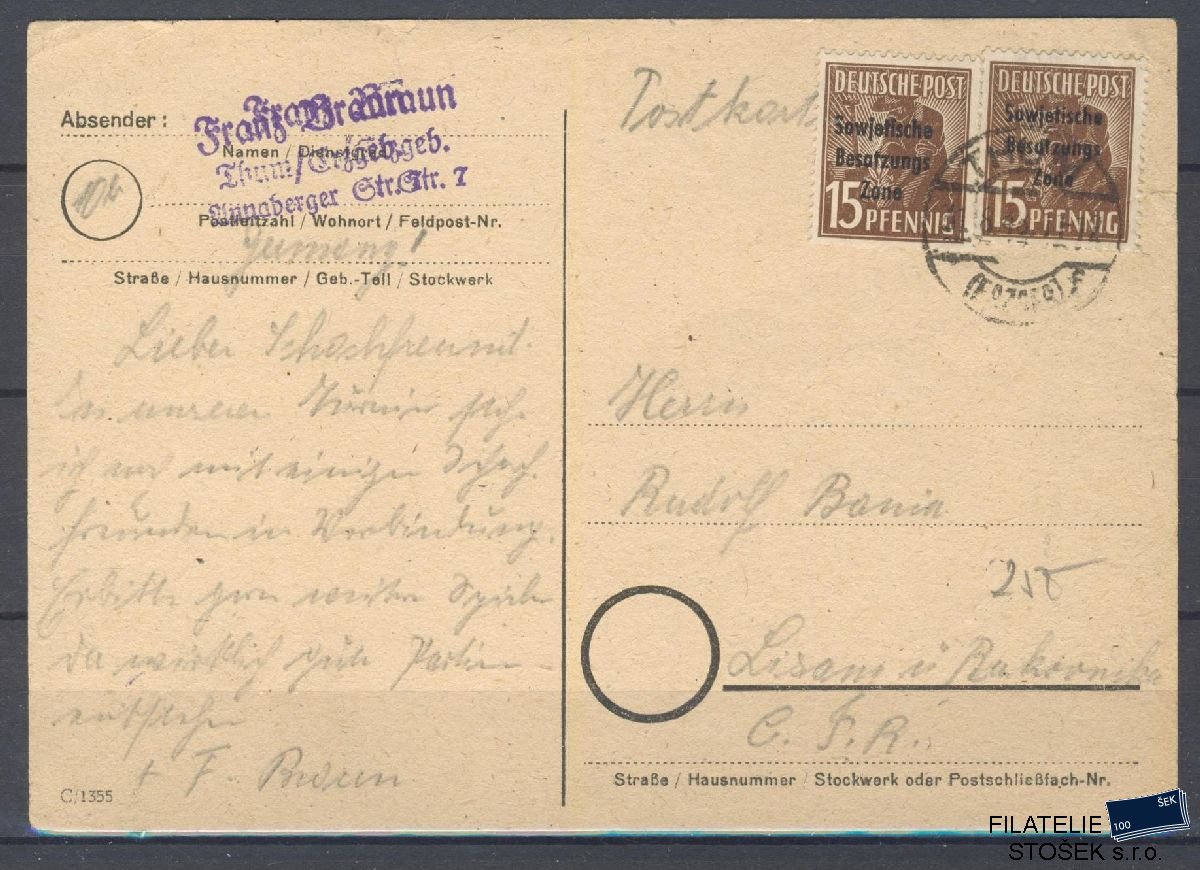 Absender:
Franz Braun
Namen / Dienstgrad
Thum/Erzgeb.
Annaberger Str. 7
10b
Postleitzahl / Wohnort / Feldpost-Nr.
Germany!
Straße / Hausnummer / Geb.-Teil / Stockwerk
Lieber Schachfreund
In unseren Turnier steh
ich noch mit einigen Schach
freunden in Verbindung.
Erbitte gern weitere Spiele
da wirklich gute Partien
entstehen
F. Braun
C/1355
Postkarte
DEUTSCHE POST
Sowjetische
Besatzungs
Zone
15 PFENNIG
DEUTSCHE POST
Sowjetische
Besatzungs
Zone
15 PFENNIG
THUM
(ERZGEB) F
Herrn
Rudolf Bania
250
Lisany u Rakovnika
C. S. R.
Straße / Hausnummer / Stockwerk oder Postschließfach-Nr.
100 ŠEK
FILATELIE
STOŠEK s.r.o.